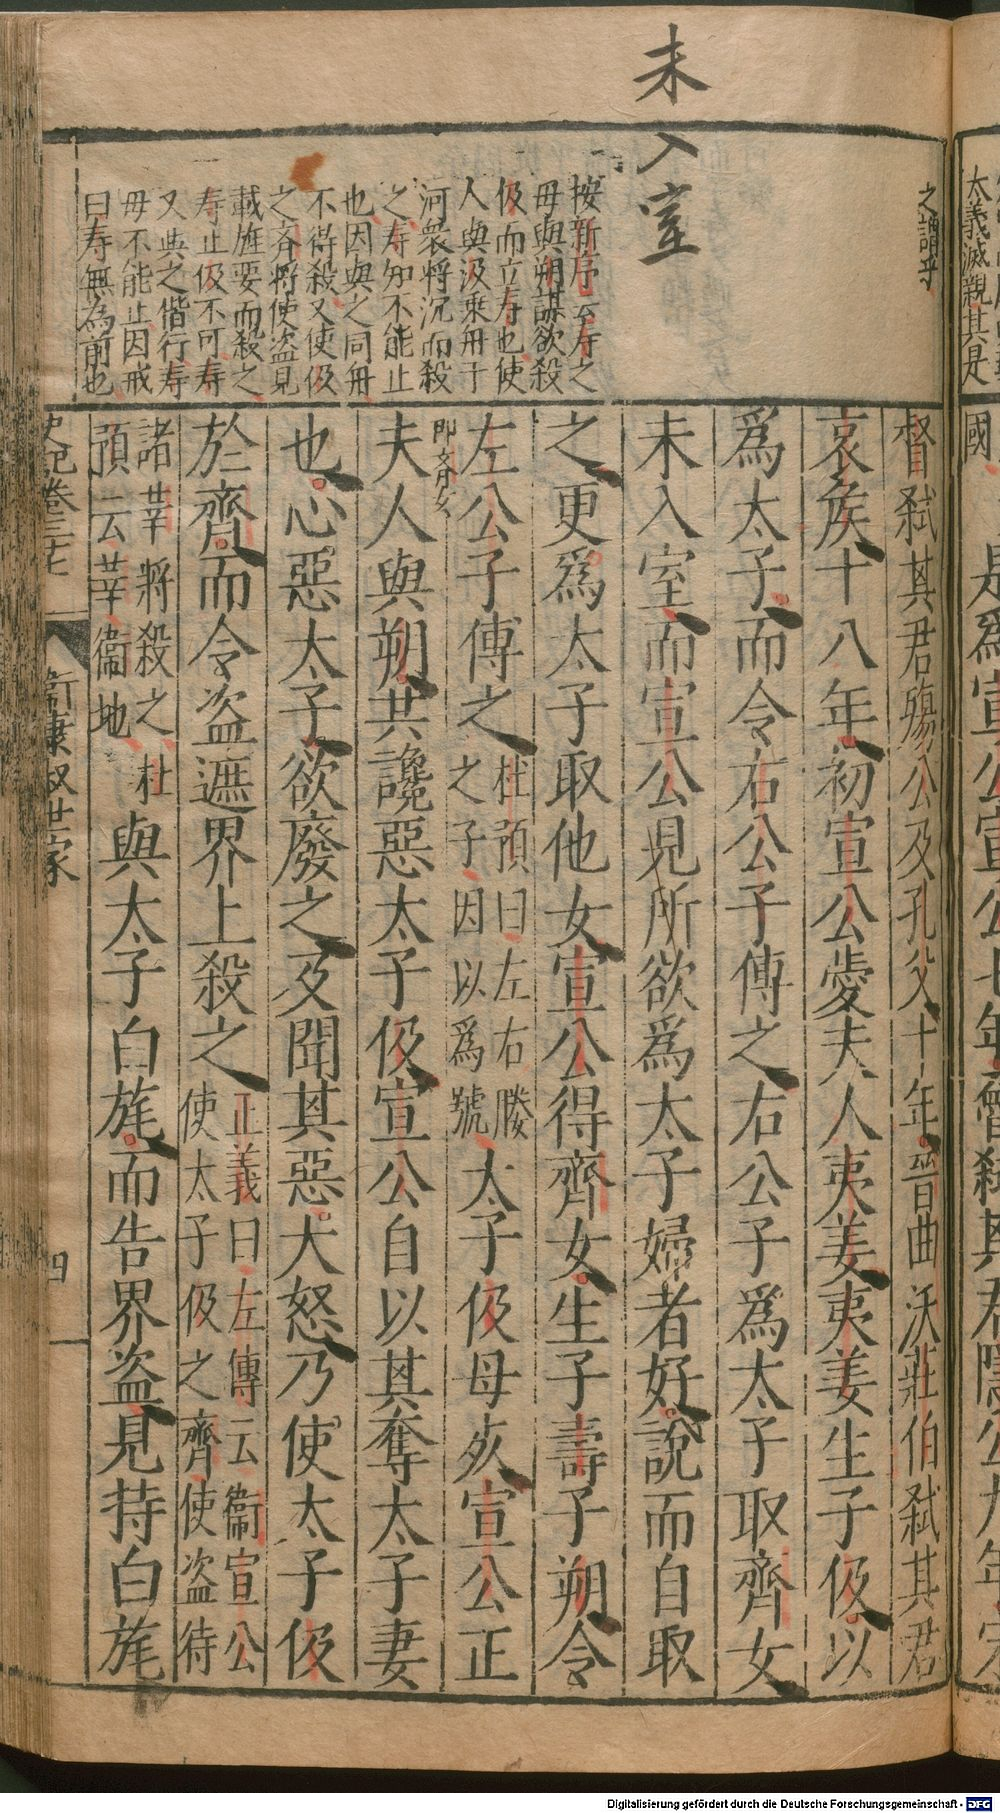 未
入室
之謂乎
按新序云寿之
母與朔謀欲殺
伋而立寿也使
人與汲乗舟于
河衆将沉而殺
之寿知不能止
也因與之同舟
不得殺又使伋
之斉将使盗見
載旌要而殺之
寿止伋不可寿
又與之偕行寿
母不能止因戒
曰寿無為前也
大義滅親其是
國 是爲宣公宣公七年魯弑其君隱公九年宋
督弑其君殤公及孔父十年晉曲沃莊伯弑其君
哀侯十八年初宣公愛夫人夷姜夷姜生子伋以
爲太子而令右公子傅之右公子爲太子取齊女
未入室而宣公見所欲爲太子婦者好說而自取
之更爲太子取他女宣公得齊女生子壽子朔令
左公子傅之杜預曰左右媵之子因以爲號太子伋母死宣公正
即斉女
夫人與朔共讒惡太子伋宣公自以其奪太子妻
也心惡太子欲廢之及聞其惡大怒乃使太子伋
於齊而令盗遮界上殺之正義曰左傳云衞宣公使太子伋之齊使盗待
諸莘將殺之杜預云莘衞地與太子白旄而告界盗見持白旄
史記卷三十七
衞康叔世家
四
Digitalisierung gefördert durch die Deutsche Forschungsgemeinschaft - DFG